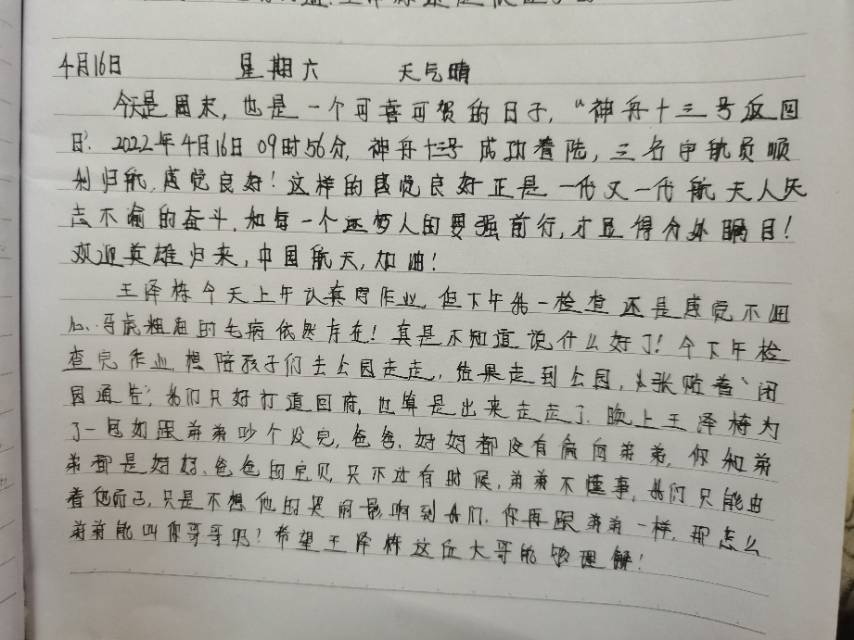 4月16日 星期六 天气晴
今天是周末，也是一个可喜可贺的日子，“神舟十三号返回
日”。2022年4月16日09时56分，神舟十三号成功着陆，三名宇航员顺
利归航，感觉良好！这样的感觉良好正是一代又一代航天人矢
志不渝的奋斗，和每一个逐梦人的要强前行，才显得分外瞩目！
欢迎英雄归来，中国航天，加油！
王泽栋今天上午认真写作业，但下午我一检查还是感觉不细
心、马虎粗心的毛病依然存在！真是不知道说什么好了！今下午检
查完作业想陪孩子们去公园走走，结果走到公园，大门张贴着“闭
园通告”，我们只好打道回府，也算是出来走走了。晚上王泽栋为
了一包奶跟弟弟吵个没完，爸爸、妈妈都没有偏向弟弟，你和弟
弟都是妈妈、爸爸的宝贝，只不过有时候，弟弟不懂事，我们只能由
着他而已，只是不想他的哭闹影响到我们，你再跟弟弟一样，那怎么
弟弟能叫你哥哥呢？希望王泽栋这位大哥能够理解！